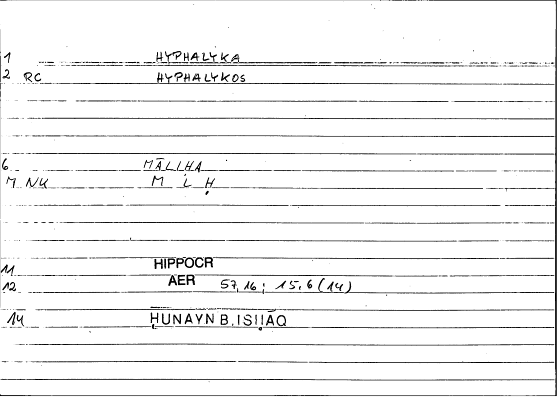 1 HYPHALYKA
2 RC HYPHALYKOS
6 MĀLIHA
M L Ḥ
11 HIPPOCR
12 AER 57,16; 15,6 (14)
14 ḤUNAYN B. ISḤĀQ